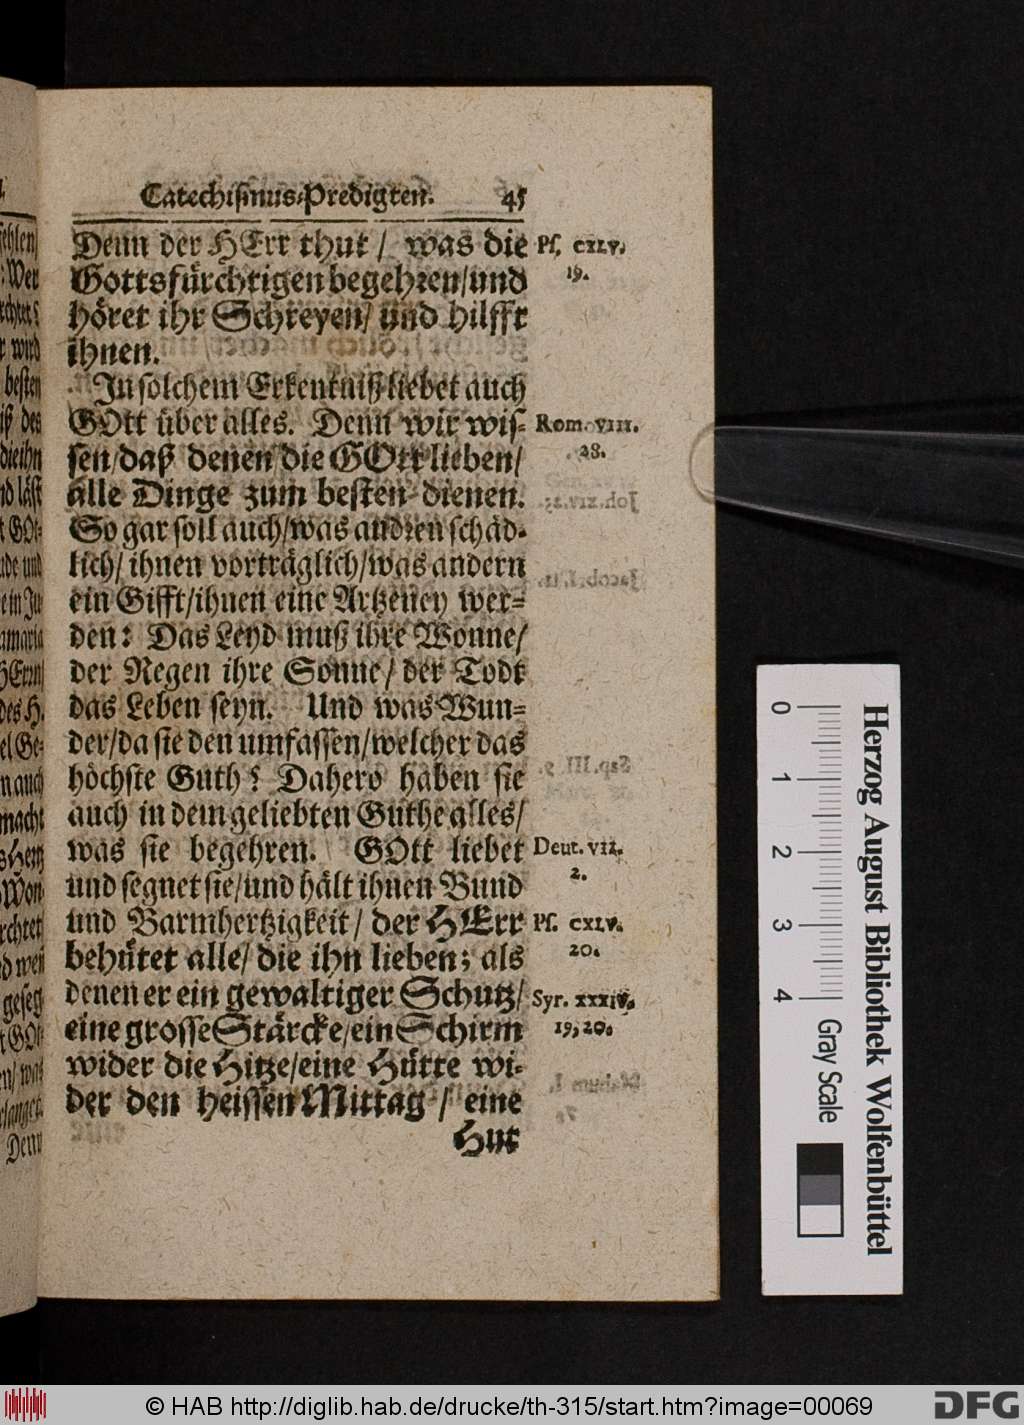 Catechismus-Predigten. 45
Denn der HErr thut / was die
Gottsfürchtigen begehren/und
höret ihr Schreyen/ und hilfft
ihnen.
In solchem Erkentniß liebet auch
GOtt über alles. Denn wir wis-
sen/daß denen/die GOtt lieben/
alle Dinge zum besten dienen.
So gar soll auch/was andren schäd-
lich/ ihnen vorträglich/was andern
ein Gifft/ihnen eine Artzeney wer-
den: Das Leyd muß ihre Wonne/
der Regen ihre Sonne/ der Todt
das Leben seyn. Und was Wun-
der/da sie den umfassen/welcher das
höchste Guth? Dahero haben sie
auch in dem geliebten Guthe alles/
was sie begehren. GOtt liebet
und segnet sie/und hält ihnen Bund
und Barmhertzigkeit/ der HErr
behütet alle/ die ihn lieben; als
denen er ein gewaltiger Schutz/
eine grosse Stärcke/ein Schirm
wider die Hitze/eine Hütte wi-
der den heissen Mittag / eine
Hut
Ps. CXLV.
19.
Rom. VIII.
28.
Deut. VII.
2.
Ps. CXLV.
20.
Syr. XXXIV.
19, 20.
0 1 2 3 4 Gray Scale
Herzog August Bibliothek Wolfenbüttel
© HAB http://diglib.hab.de/drucke/th-315/start.htm?image=00069
DFG